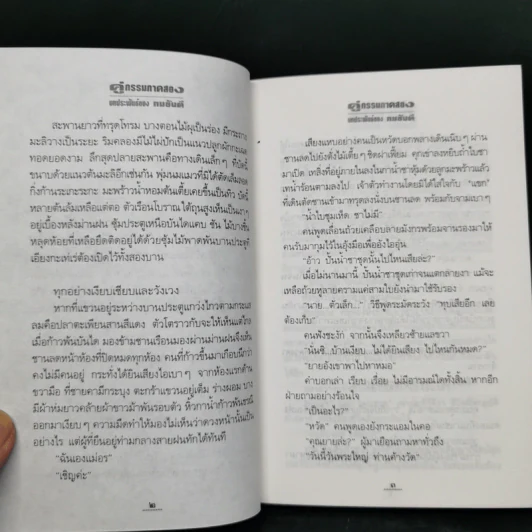 สะพานยาวที่ทรุดโทรม บางตอนไม้ผุเป็นร่อง มีกระถาง
มะลิวางเป็นระยะ ริมคลองมีไม้ไผ่ปักเป็นแนวปลูกผักกระเฉด
ทอดยอดงาม ลึกสุดปลายสะพานคือทางเดินเล็กๆ ที่บัดนี้
ขนาบด้วยแนวต้นมะลิอีกเช่นกัน
กิ่งก้านระเกะระกะ มะพร้าวน้ำหอมต้นเตี้ยเคยขึ้นเป็นทิว บัดนี้
หลายต้นล้มเหลือแต่ตอ ตัวเรือนโบราณ ใต้ถุนสูงเห็นเป็นเงาๆ
อยู่เบื้องหลังม่านฝน ซุ้มประตูเหนือบันไดแคบ ชัน
หลุดห้อยที่เหลือยึดติดอยู่ได้ด้วยซุ้มไม้พาดพันบานประตู
เอียงกะเท่เร่ต้องเปิดไว้ทั้งสองบาน
ทุกอย่างเงียบเชียบและวังเวง
หากที่แขวนอยู่ระหว่างบานประตูแกว่งไกวตามกระแส
ลมคือปลาตะเพียนสานสีแดง
เมื่อก้าวพ้นบันได มองข้ามชานเรือนมองผ่านม่านฝนจึงเห็น
ชานลดหน้าห้องที่ปิดหมดทุกห้อง คนที่ก้าวขึ้นมาเกือบนึกว่า
คงไม่มีคนอยู่ กระทั่งได้ยินเสียงไอเบาๆ จากห้องแรกด้าน
ขวามือ ที่ชายคามีกระบุง ตะกร้าแขวนอยู่เต็ม ร่างผอม บาง
มีผ้าห่มยาวคล้ายผ้าขาวม้าพันรอบตัว หิ้วกาน้ำก้าวพ้นธรณี
ออกมาเงียบๆ ความมืดทำให้มองไม่เห็นว่าดวงหน้านั้นเป็น
อย่างไร แต่ผู้ที่ยืนอยู่ท่ามกลางสายฝนทักได้ทันที
“ฉันเองแม่อร”
“เชิญค่ะ”
๒
เสียงแหบอย่างคนเป็นหวัดบอกพลางเดินเนิบๆ ผ่าน
ชานลดไปยังตั่งไม้เตี้ยๆ ชิดฝาเฟี้ยม คุกเข่าลงหยิบถ้ำใบชา
มาเปิด เทสิ่งที่อยู่ภายในลงในกาน้ำชาหุ้มด้วยลูกมะพร้าวแล้ว
เทน้ำร้อนตามลงไป เจ้าตัวทำงานโดยมิได้ใส่ใจกับ “แขก”
ที่เดินตัดชานเข้ามาทรุดลงนั่งบนชานลด พร้อมกับจามเบาๆ
“น้ำใบชุมเห็ด ชาไม่มี”
คนพูดเลื่อนถ้วยเคลือบลายมังกรพร้อมจานรองมาให้
คนรับมากุมไว้ในอุ้งมือเพื่อยังไออุ่น
“อ้าว ปั้นน้ำชาชุดนั้นไปไหนเสียล่ะ?”
เมื่อไม่นานมานี้ ปั้นน้ำชาชุดเก่าจนแตกลายงา แม้จะ
เหลือถ้วยหูลายความแค่สามใบยังนำมาใช้รับรอง
“นาย...ตัวเล็ก...” วิธีพูดระมัดระวัง “ทุบเสียอีก เลย
ต้องเก็บ”
คนฟังชะงัก จากนั้นจึงเหลียวซ้ายแลขวา
“นั่นซิ...บ้านเงียบ...ไม่ได้ยินเสียง ไปไหนกันหมด?”
“ยายอังเขาพาไปหาหมอ”
คำบอกเล่า เรียบ เรื่อย ไม่มีอารมณ์ใดทั้งสิ้น หากอีก
ฝ่ายถามอย่างร้อนใจ
“เป็นอะไร?”
“หวัด” คนพูดเองยังกระแอมในคอ
“คุณยายล่ะ?” ผู้มาเยือนถามหาทั่วถึง
“วันนี้วันพระใหญ่ ท่านค้างวัด”
๓